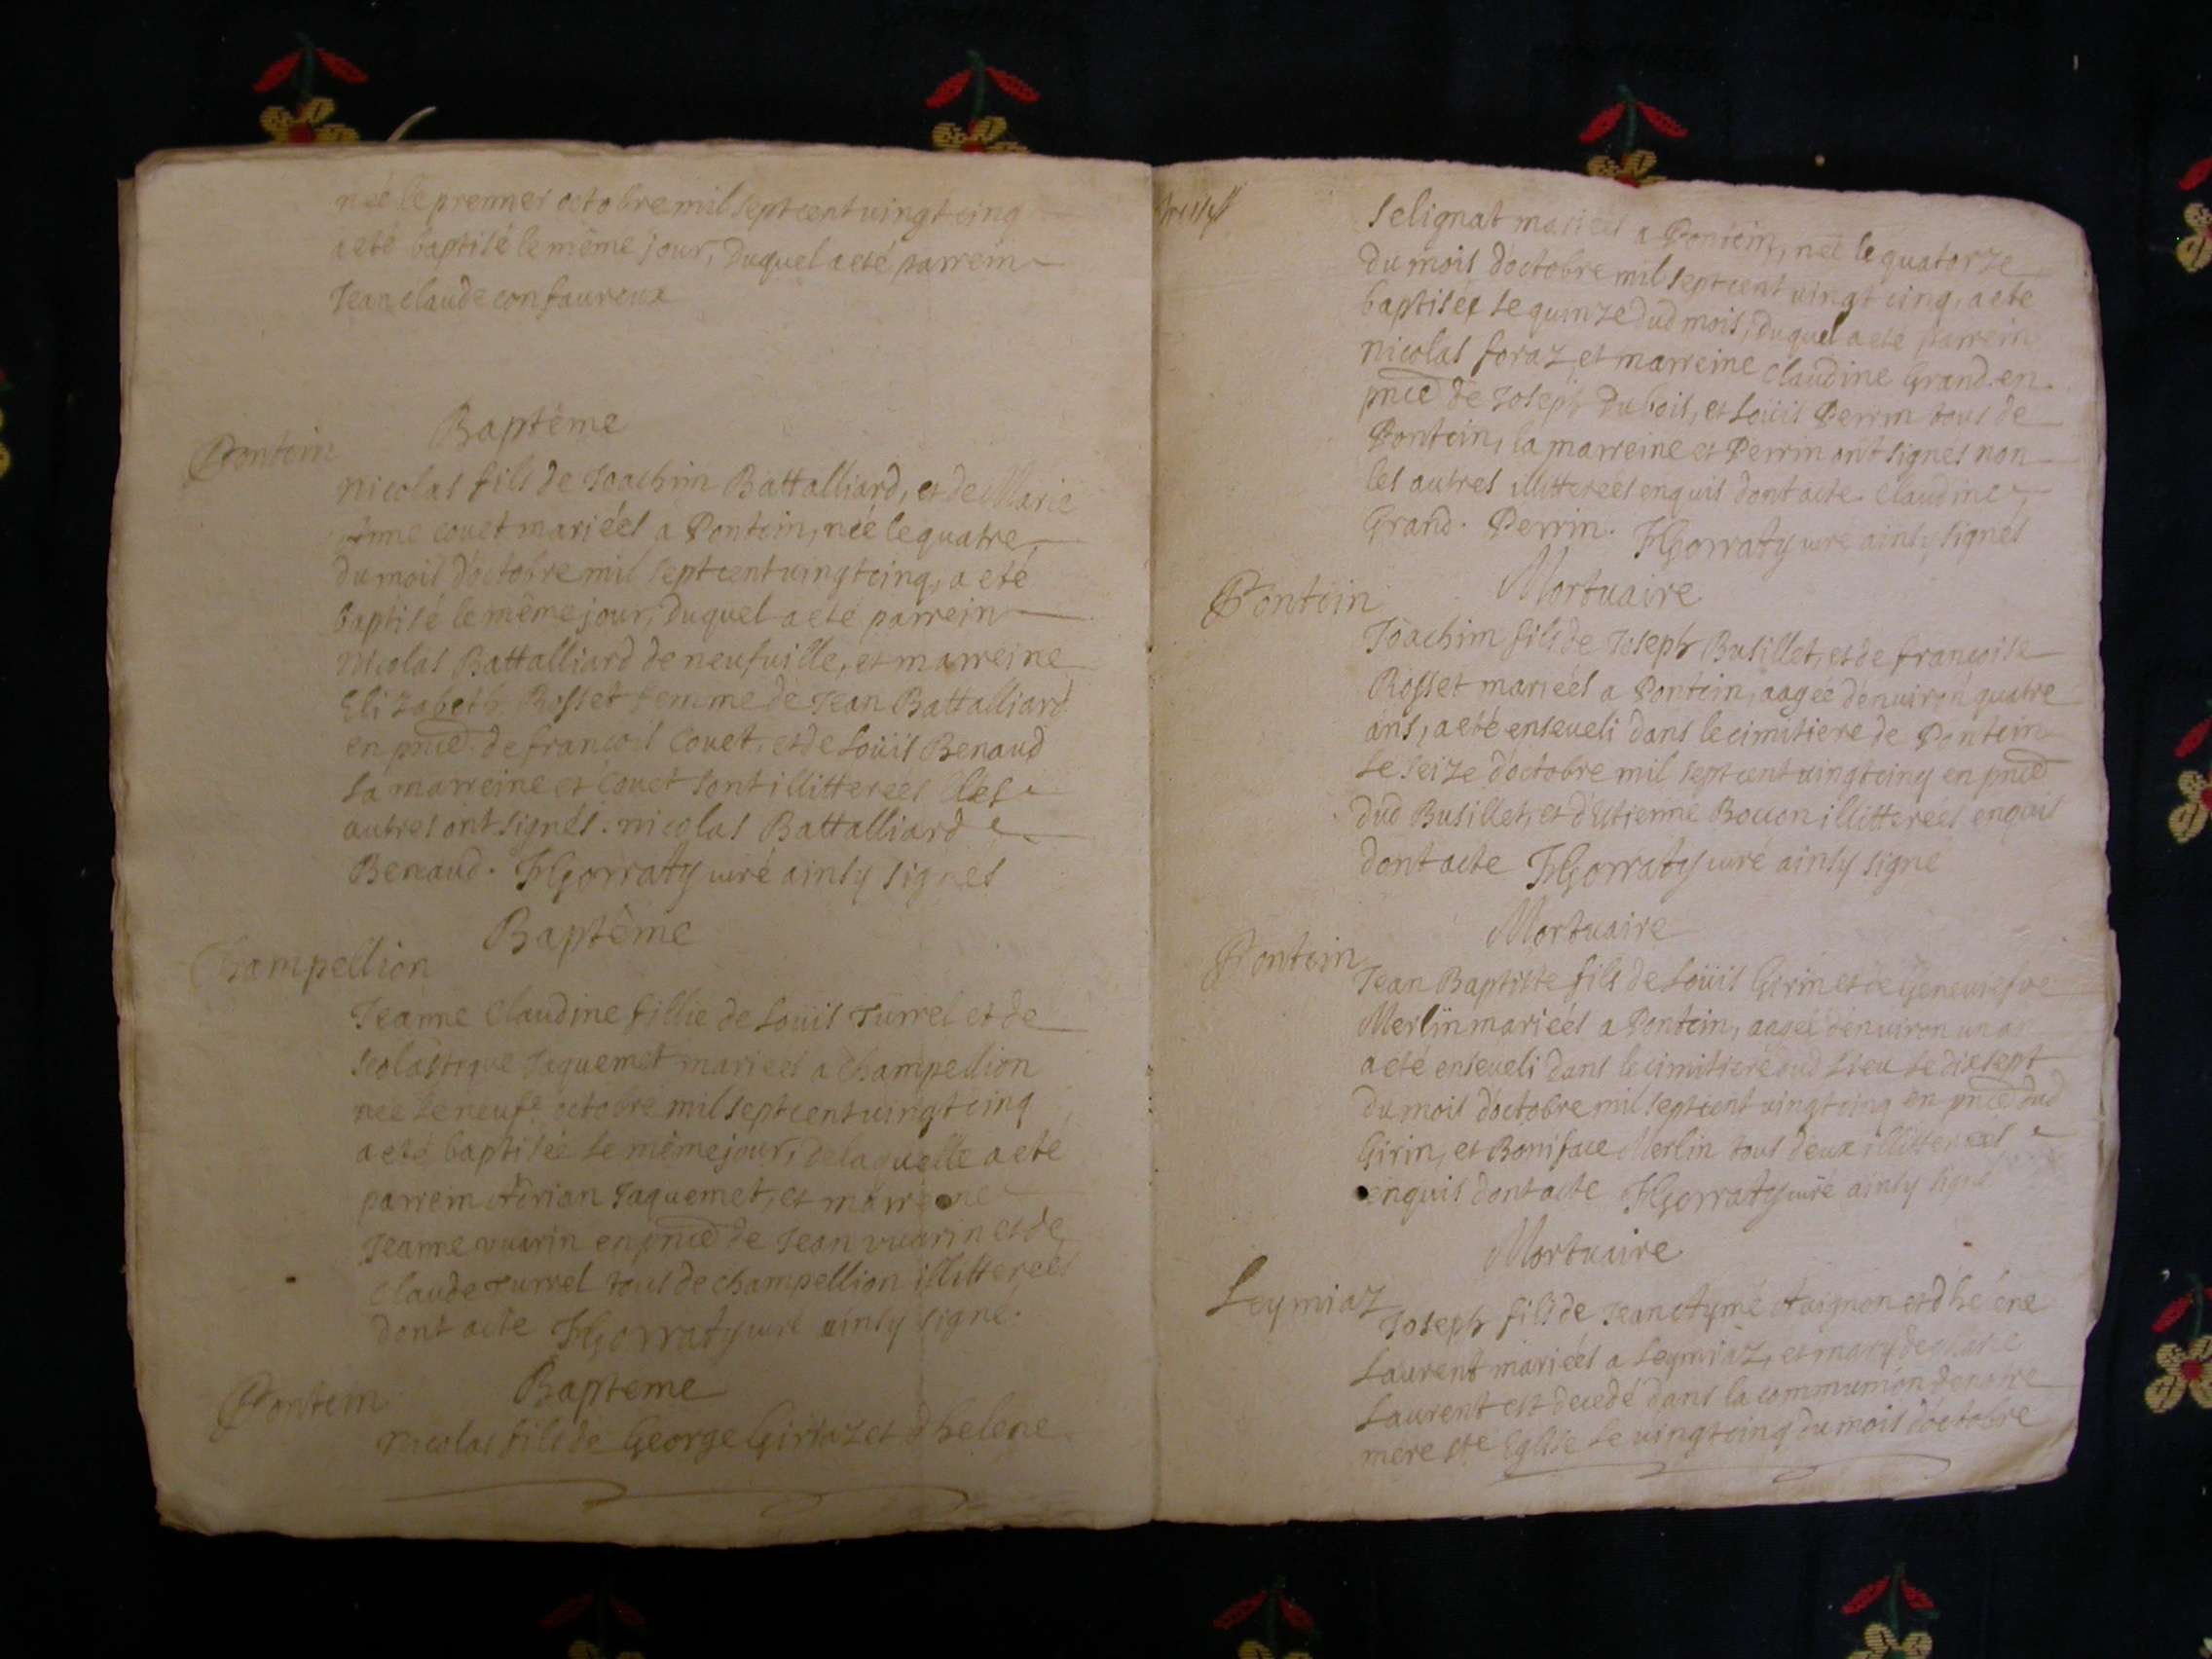 née le premier octobre mil sept cent vingt cinq
a eté baptisé le même jour, duquel a eté parrein
Jean claude confaureux
Baptême
Pontein
nicolas fils de Joachim Battalliard, et de Marie
Anne couet mariéés a Pontein, née le quatre
du mois d'octobre mil sept cent vingt cinq, a eté
baptisé le même jour, duquel a eté parrein
Nicolas Battalliard de neufuille, et marreine
Elizabeth Rosset femme de Jean Battalliard
en pnce de francois Couet, et de Loüis Benaud
La marreine et Couet sont illitterées les
autres ont signés. nicolas Battalliard
Benaud. JHGorraty curé ainsy signés
Baptême
Champellion
Jeanne Claudine fillie de Loüis Turrel et de
scolastique Jaquemet mariéés a Champellion
née le neufe octobre mil sept cent vingt cinq
a eté baptisée le même jour, de laquelle a eté
parrein Adrian Jaquemet, et marreine
Jeanne vuarin en pnce de Jean vuarin et de
Claude Turrel tous de Champellion illitterées
dont acte JHGorraty curé ainsy signé.
Pontein
Bapteme
Nicolas fils de George Girraz et d'helene
Selignat mariéés a Pontein, née le quatorze
du mois d'octobre mil sept cent vingt cinq, a eté
baptisée le quinze dud mois, duquel a eté parrein
Nicolas foraz, et marreine Claudine Grand. en
pnce de Joseph Dubois, et Loüis Perrin tous de
Pontein, la marreine et Perrin ont signés non
les autres illitterées enquis dont acte. Claudine
Grand. Perrin. JHGorraty curé ainsy signés
Mortuaire
Pontein
Joachim fils de Joseph Busillet, et de francoise
Rosset mariéés a Pontein, aagée d'environ quatre
ans, a eté enseveli dans le cimitiere de Pontein
Le seize d'octobre mil sept cent vingt cinq en pnce
dud Busillet, et d'Etienne Boccon illitterées enquis
dont acte JHGorraty curé ainsy signé
Mortuaire
Pontein
Jean Baptiste fils de Loüis Girin et de Genevuiefve
Merlin mariéés a Pontein, aagée d'environ un an
a eté enseveli dans le cimitiere dud Lieu le dixsept
du mois d'octobre mil sept cent vingt cinq en pnce dud
Girin, et Boniface Merlin tous deux illitterées
enquis dont acte JHGorraty curé ainsy signé
Mortuaire
Leymiaz
Joseph fils de Jean Aymé Avignon et d'heléne
Laurent mariéés a Leymiaz, et mary de
Laurent est decedé dans la communion de notre
mere ste Eglise le vingt cinq du mois d'octobre